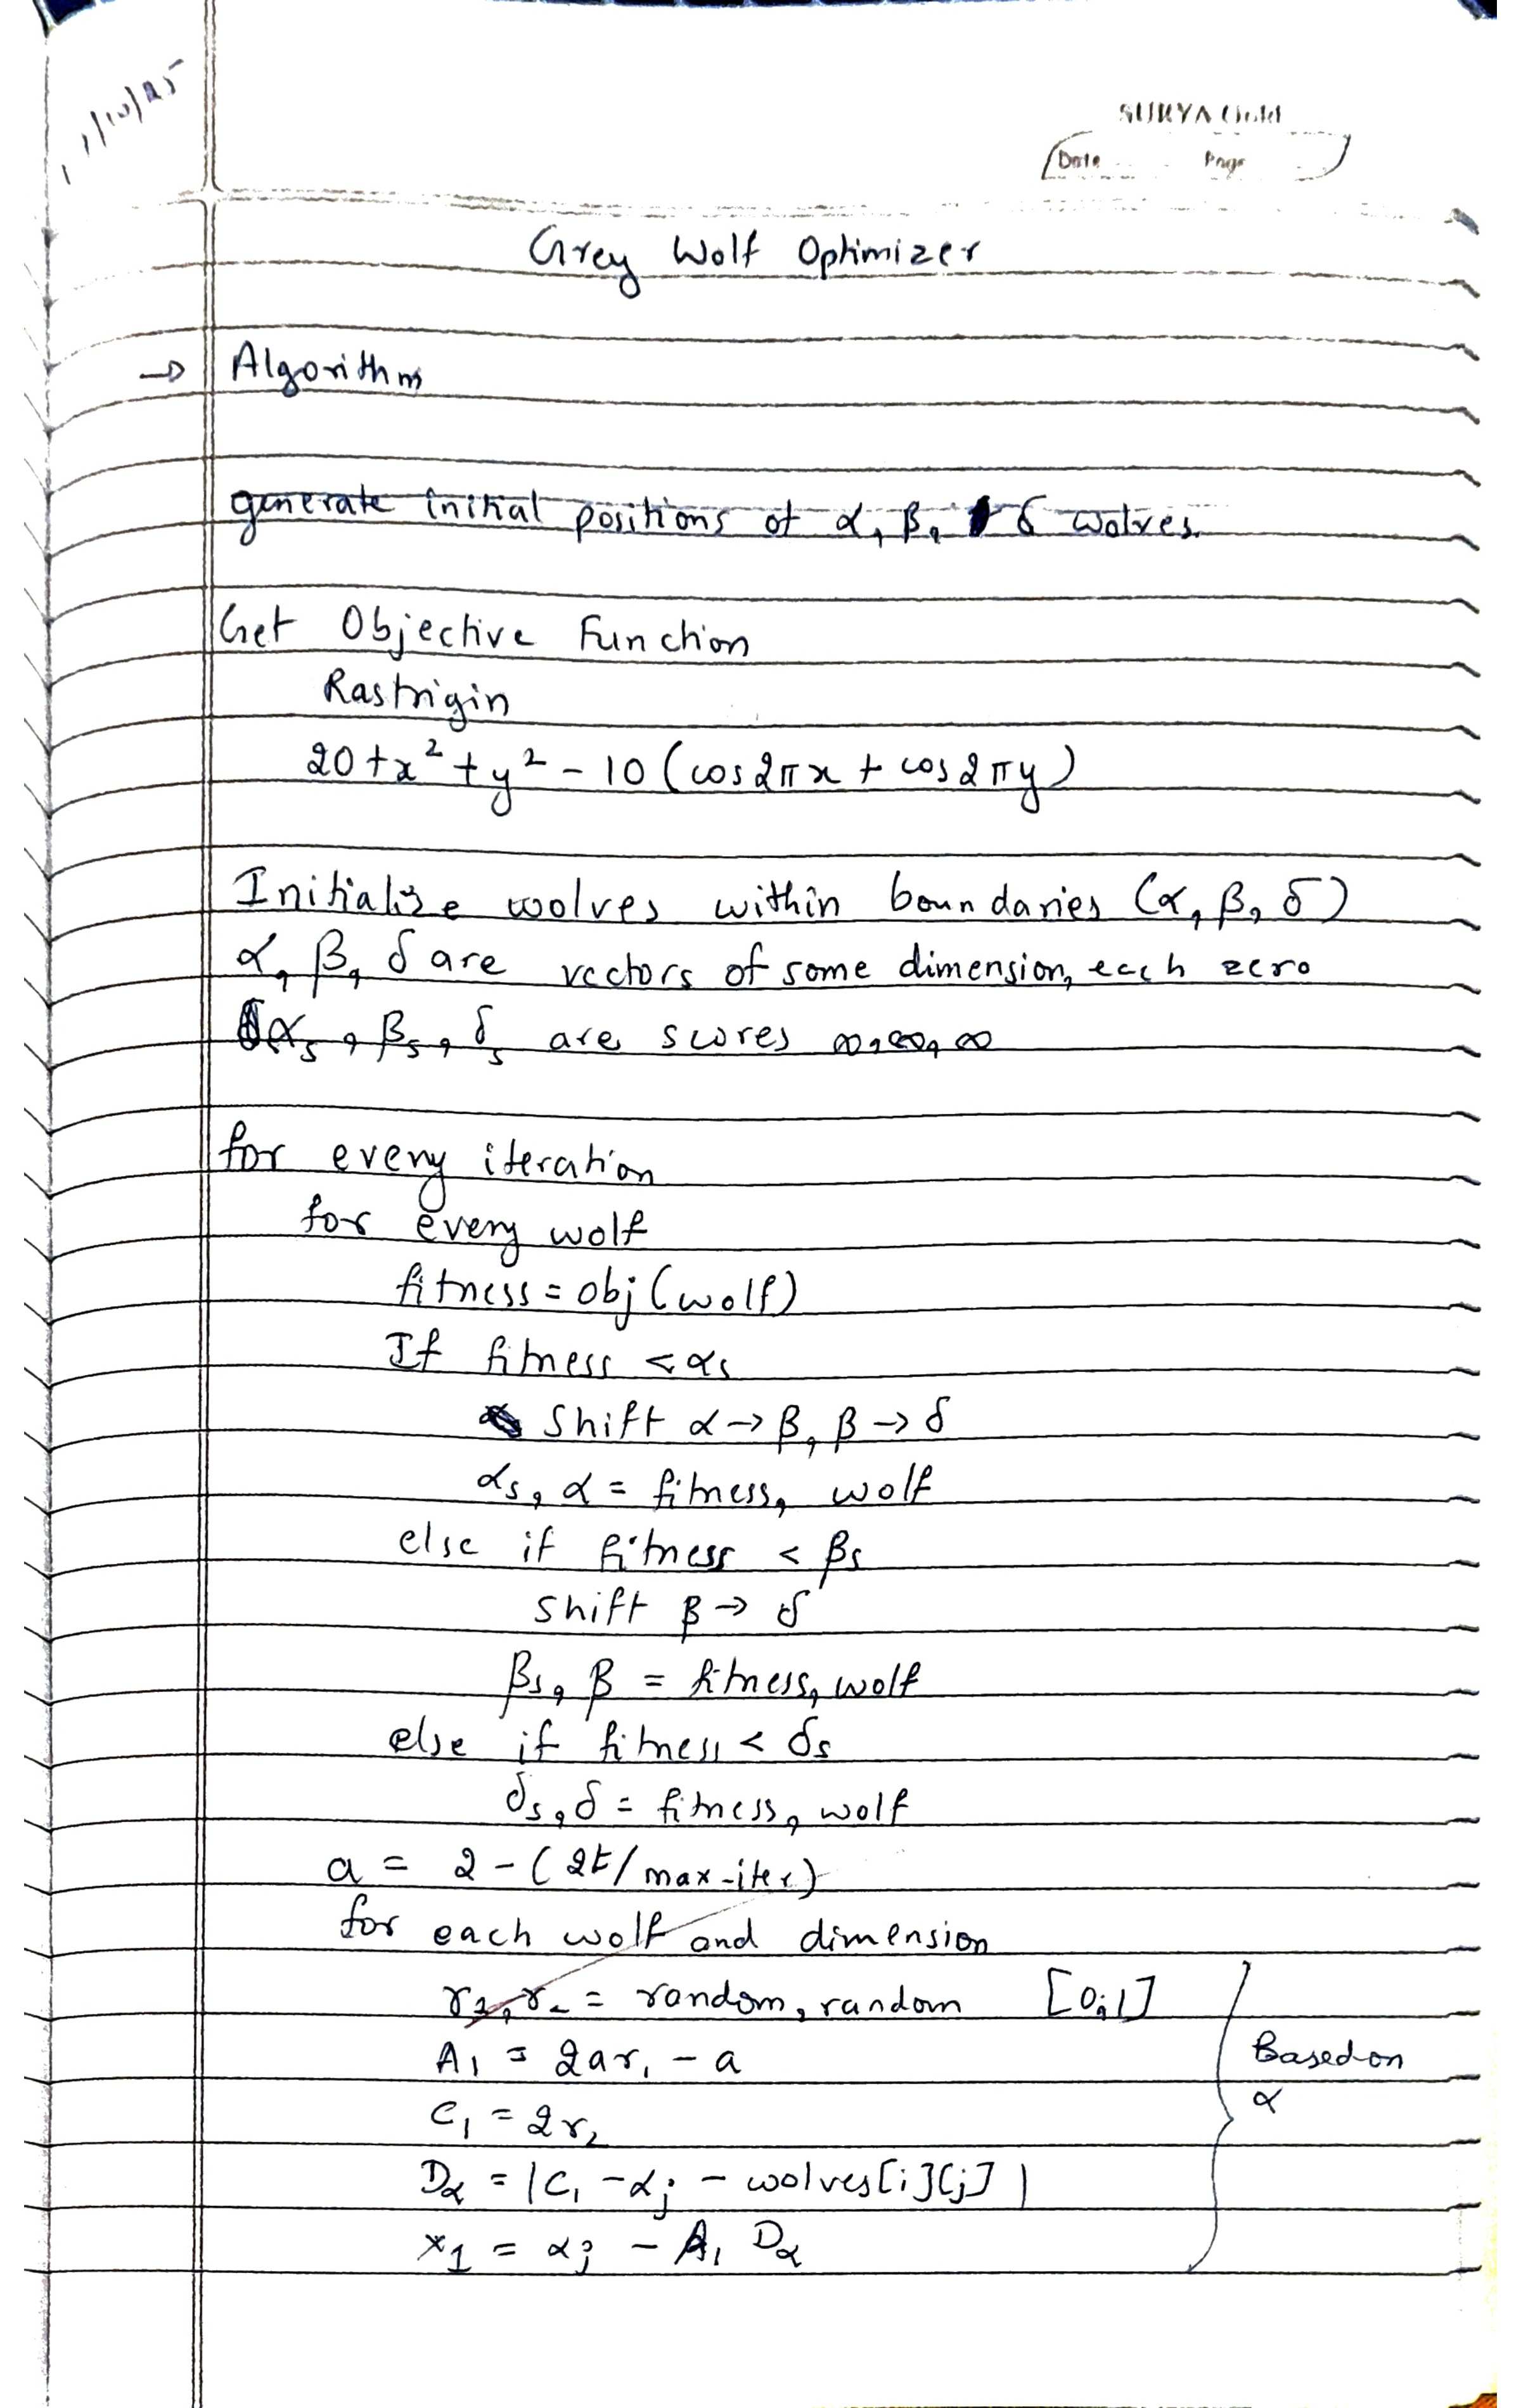 11/10/25
SURYA Gold
Date Page
Grey Wolf Optimizer
→ Algorithm
generate initial positions of α, β, δ wolves.
Get Objective Function
Rastrigin
20 + x² + y² - 10 (cos2πx + cos2πy)
Initialize wolves within boundaries (α, β, δ)
α, β, δ are vectors of some dimension, each zero
αs, βs, δs are scores ∞, ∞, ∞
for every iteration
for every wolf
fitness = obj (wolf)
If fitness < αs
Shift α → β, β → δ
αs, α = fitness, wolf
else if fitness < βs
shift β → δ
βs, β = fitness, wolf
else if fitness < δs
δs, δ = fitness, wolf
a = 2 - (2t / max-iter)
for each wolf and dimension
r1, r2 = random, random [0,1]
A1 = 2ar1 - a
Based on
C1 = 2r2
α
Dα = |C1 - αj - wolves[i][j]|
x1 = αj - A1 Dα